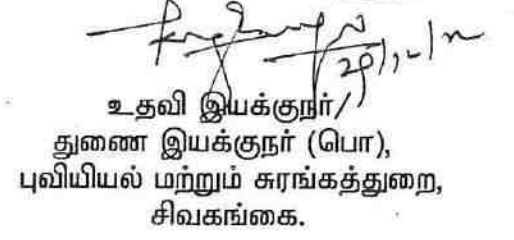 உதவி இயக்குநர்/
துணை இயக்குநர் (பொ),
புவியியல் மற்றும் சுரங்கத்துறை,
சிவகங்கை.